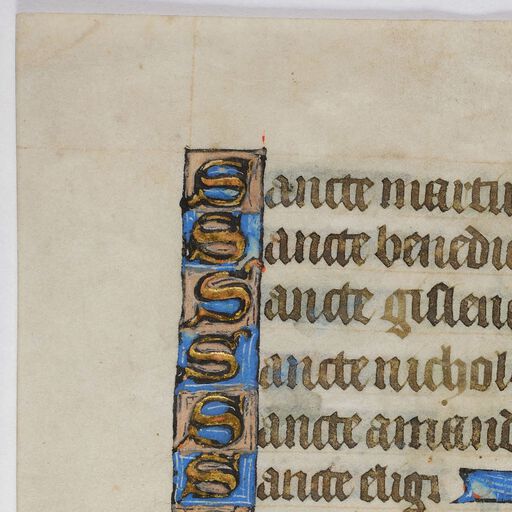 Sancte martin
Sancte benedic
Sancte gislene
Sancte nichol
Sancte amand
Sancte eligi